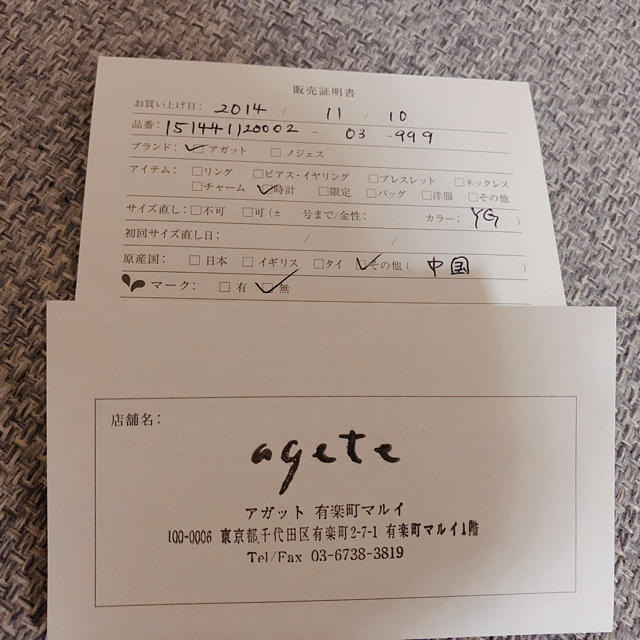 販売証明書
お買い上げ日： 2014 / 11 / 10
品番： 151441120002 - 03 - 999
ブランド： ☑アガット □ノジェス
アイテム： □リング □ピアス・イヤリング □ブレスレット □ネックレス
□チャーム ☑時計 □限定 □バッグ □洋服 □その他
サイズ直し：□不可 □可（± 号まで/金性： カラー： YG ）
初回サイズ直し日： / /
原産国： □日本 □イギリス □タイ ☑その他（ 中国 ）
マーク： □有 ☑無
店舗名：
agete
アガット 有楽町マルイ
100-0006 東京都千代田区有楽町2-7-1 有楽町マルイ1階
Tel/Fax 03-6738-3819